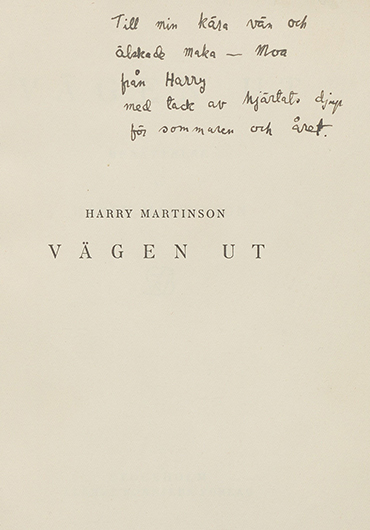 Till min kära vän och
älskade maka — Moa
från Harry
med tack av hjärtats djup
för sommaren och året.
HARRY MARTINSON
VÄGEN UT